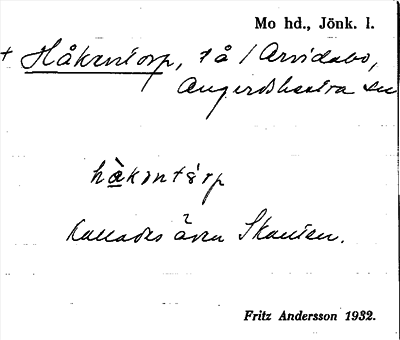 Mo hd., Jönk. l.
+ Håkantorp, tå / Arvidabo,
Angerdshestra sn
håkantórp
Kallades även Skanien.
Fritz Andersson 1932.